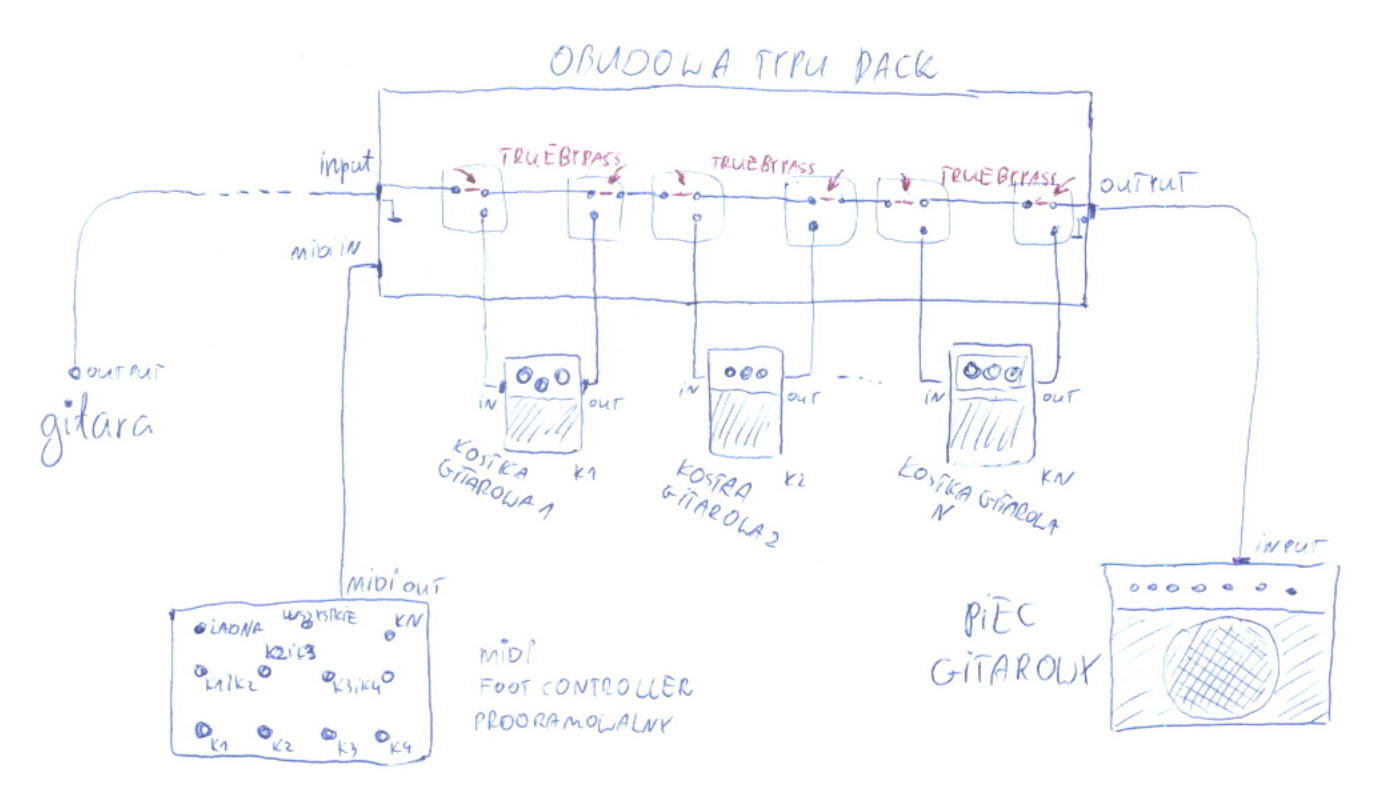 OBUDOWA TYPU RACK
input
TRUEBYPASS
TRUEBYPASS
TRUEBYPASS
OUTPUT
MIDI IN
OUTPUT
gitara
IN
OUT
IN
OUT
IN
OUT
KOSTKA
GITAROWA 1
K1
KOSTKA
GITAROWA 2
K2
KOSTKA GITAROWA
N
KN
INPUT
MIDI OUT
ŻADNA
WSZYSTKIE
KN
K1iK2
K2iK3
K3iK4
K1
K2
K3
K4
MIDI
FOOT CONTROLLER
PROGRAMOWALNY
PIEC
GITAROWY